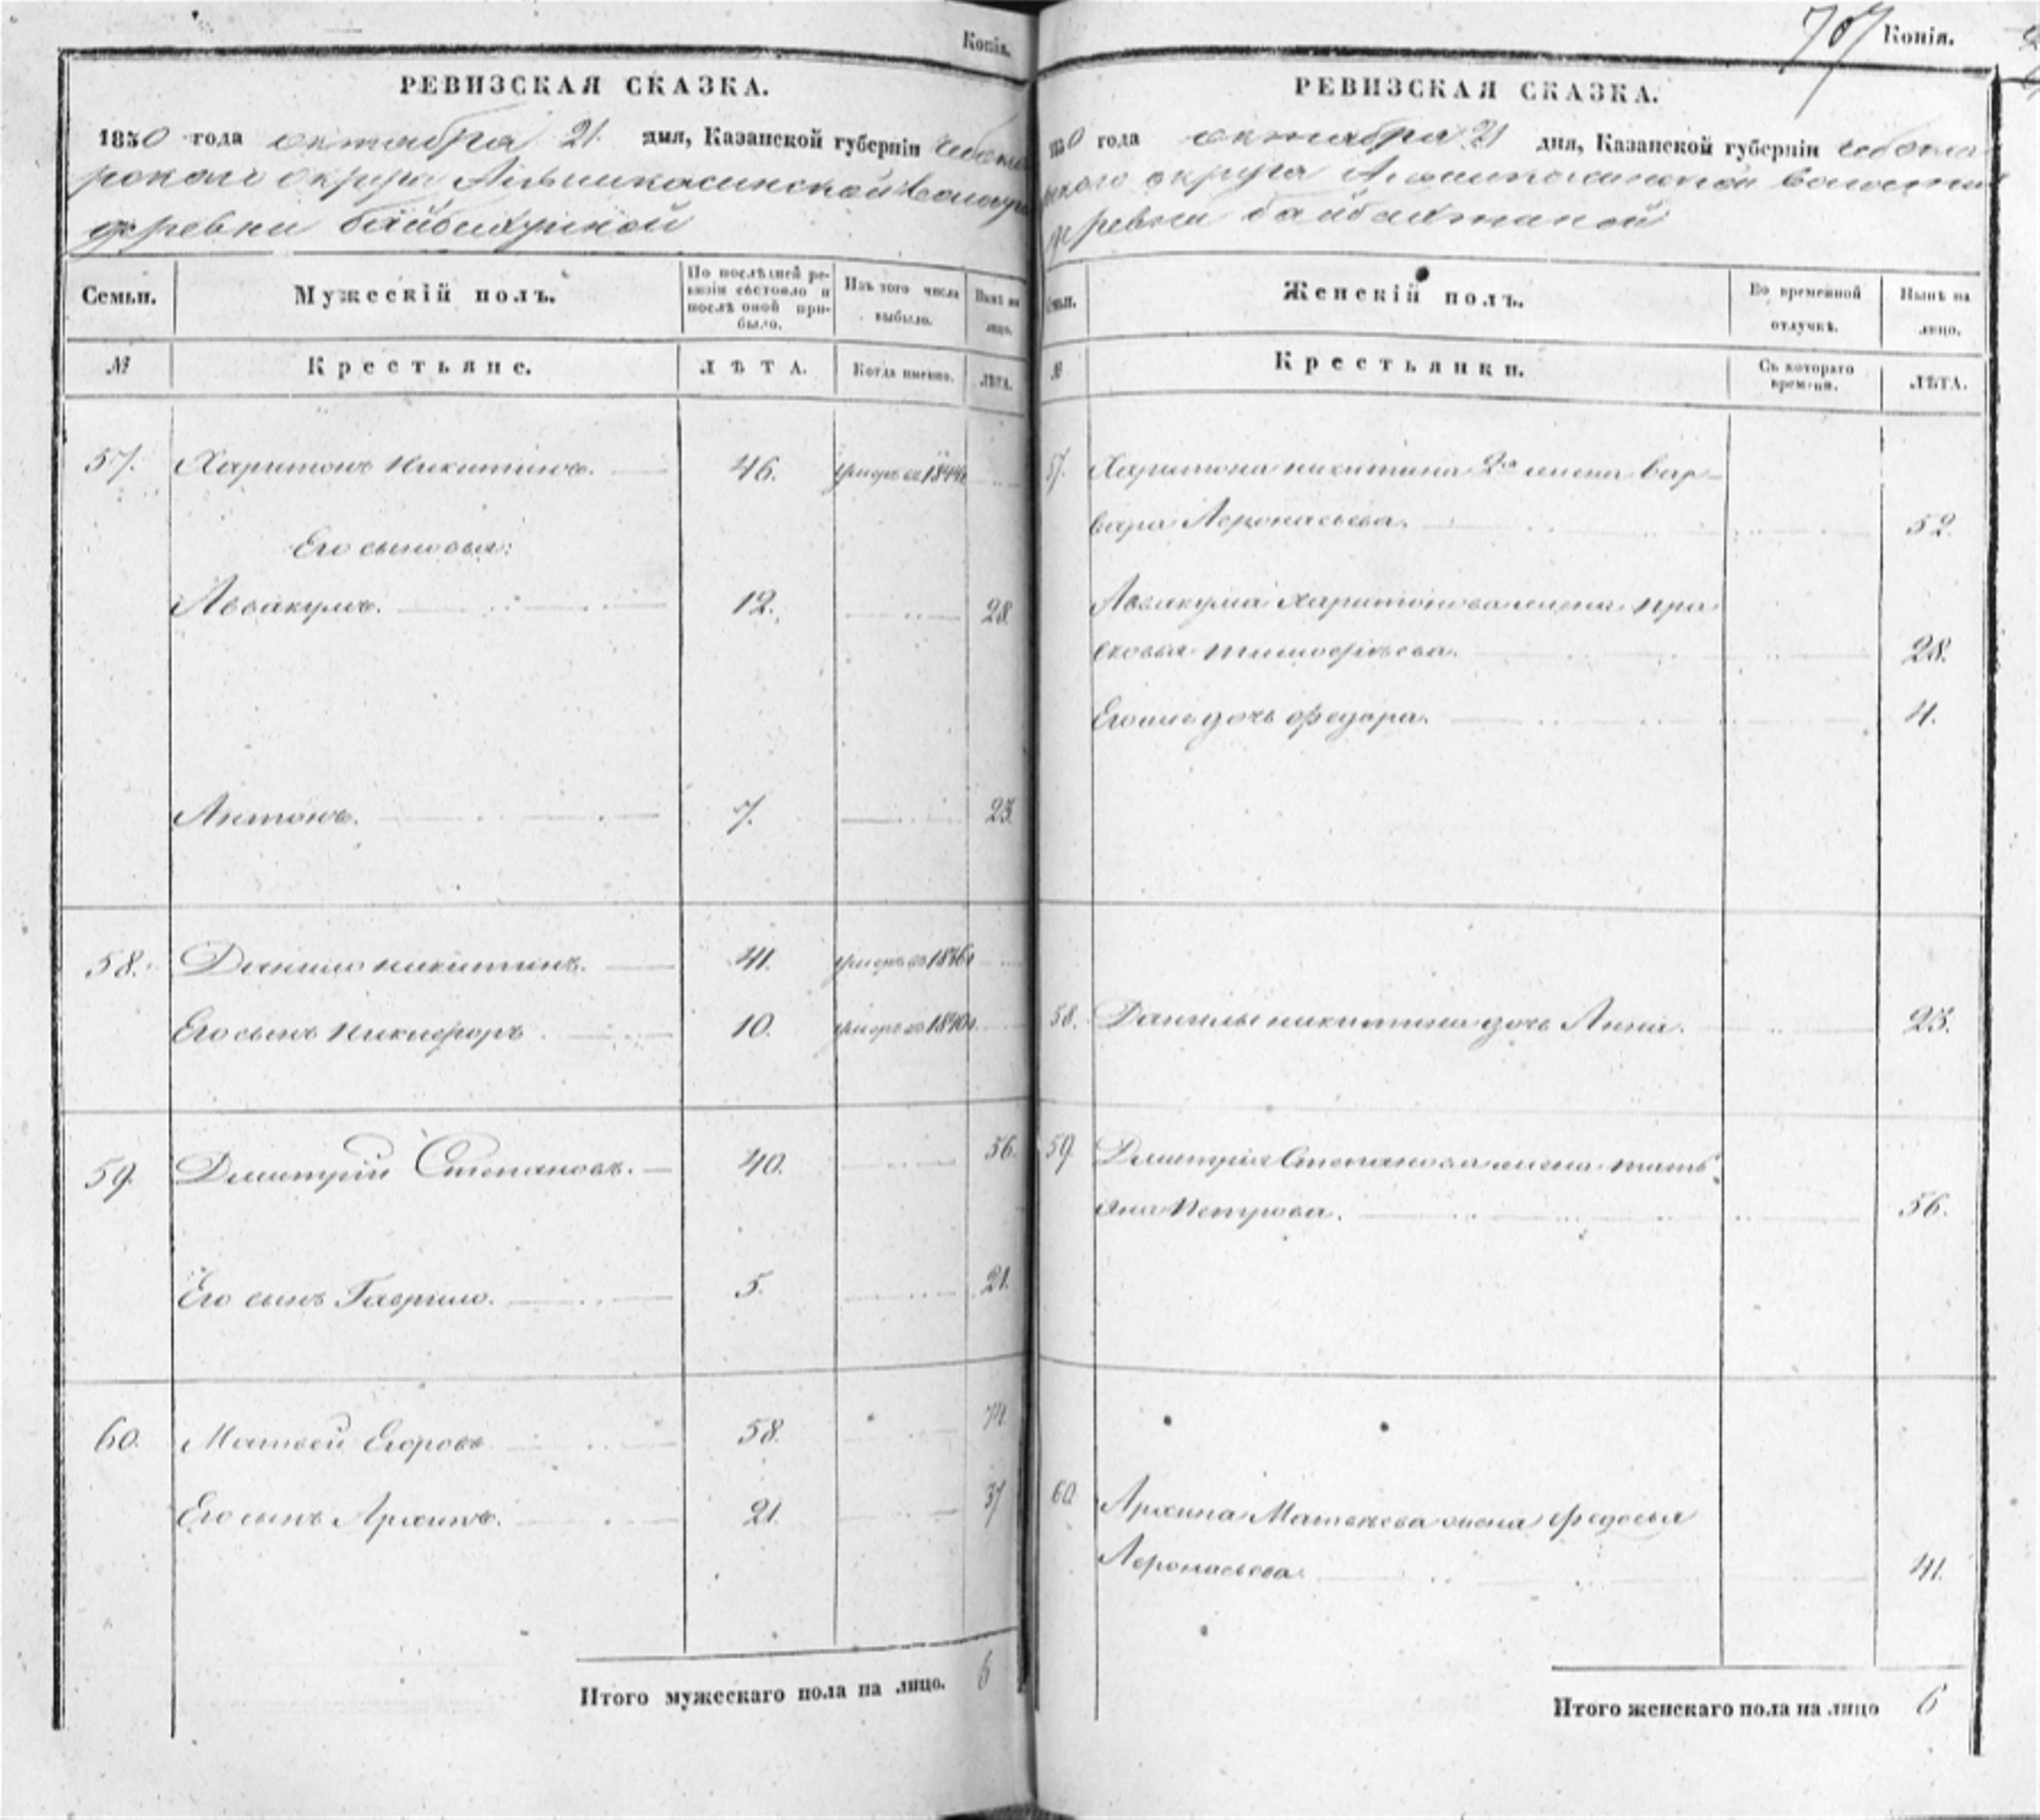 Копія.
РЕВИЗСКАЯ СКАЗКА.
1850 года октабра 21 дня, Казанской губерніи Чебокса
рскаго округа Алымкасинской Волости
деревни байбахтиной
Семьи. Мужескій полъ. По послѣдней ре-
визіи состояло и
послѣ оной при-
было. Изъ того числа
выбыло. Нынѣ на
лицо.
№ Крестьяне. ЛѢТА. Когда именно. ЛѢТА.
57. Харитонъ Никитинъ. 46. умеръ въ 1844г
Его сыновья:
Аввакумъ. 12. 28.
Антонъ. 7. 23.
58. Данило никитинъ. 41. умеръ въ 1846г
Его сынъ Никифоръ 10. умеръ въ 1840г.
59. Дмитрій Степановъ. 40. 56.
Его сынъ Гаврило. 5. 21.
60. Матвей Егоровъ 58. 74.
Его сынъ Архипъ. 21. 37
Итого мужескаго пола на лицо. 6
707 Копія.
РЕВИЗСКАЯ СКАЗКА.
1850 года октабра 21 дня, Казанской губерніи Чебокса
рскаго округа волости
деревни байбахтиной
Семьи. Женскій полъ. Во временной
отлучкѣ. Нынѣ на
лицо.
№ Крестьянки. Съ котораго
времени. ЛѢТА.
57. Харитона никитина 2я жена Вар-
вара Афонасьева. 52.
Аввакума Харитонова жена пра
сковья тимофѣева. 28.
Его же дочь федора. 4.
58. Данилы никитина дочь Анна. 23.
59 Дмитрія Степанова жена тать
яна Петрова. 56.
60 Архипа Матвѣева жена федосья
Афонасьева. 41.
Итого женскаго пола на лицо 6